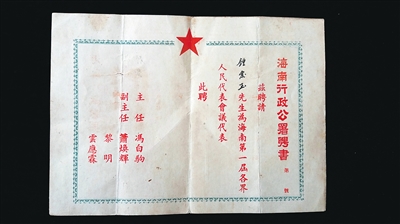 海南行政公署聘書
第 號
茲聘請
鍾堂玉先生為海南第一屆各界
人民代表會議代表
此聘
主任 馮白駒
副主任 蕭煥輝
黎明
雲應霖